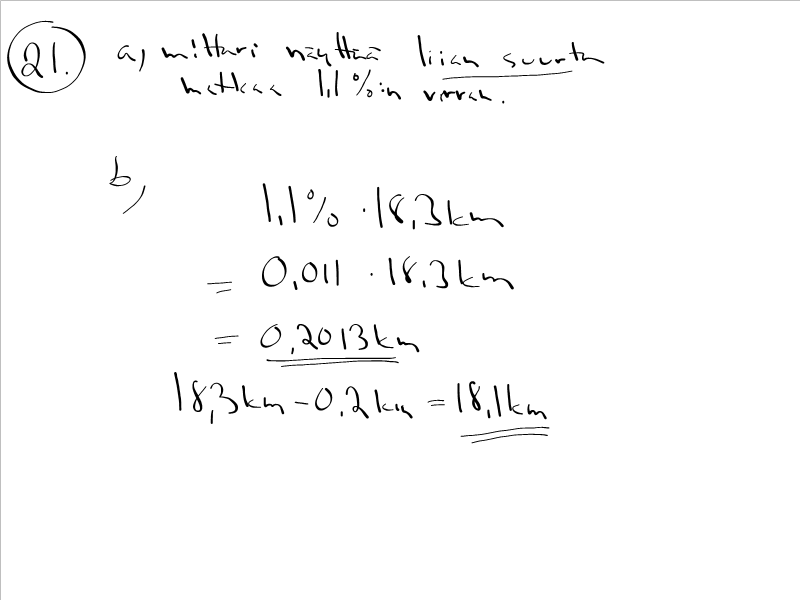 21. a) mittari näyttää liian suurta
matkaa 1,1 %:n verran.
b)
1,1% · 18,3km
= 0,011 · 18,3km
= 0,2013km
18,3km - 0,2km = 18,1km